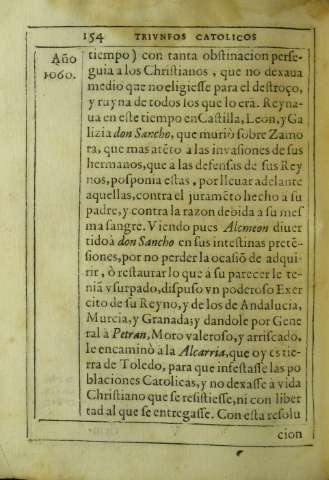 154 TRIVNFOS CATOLICOS
Año
1060.
tiempo) con tanta obstinacion perse-
guia a los Christianos, que no dexaua
medio que no eligiesse para el destroço,
y ruyna de todos los que lo era. Reyna-
ua en este tiempo en Castilla, Leon, y Ga
lizia don Sancho, que muriò sobre Zamo
ra, que mas atēto a las inuasiones de sus
hermanos, que a las defensas de sus Rey
nos, posponia estas, por lleuar adelante
aquellas, contra el juramēto hecho a su
padre, y contra la razon debida a su mes
ma sangre. Viendo pues Alemeon diuer
tido à don Sancho en sus intestinas pretē-
siones, por no perder la ocasiō de adqui-
rir, ò restaurar lo que a su parecer le te-
nia vsurpado, dispuso vn poderoso Exer
cito de su Reyno, y de los de Andalucia,
Murcia, y Granada; y dandole por Gene
ral à Petran, Moro valeroso, y arriscado,
le encaminò a la Alcarria, que oy es tie-
rra de Toledo, para que infestasse las po
blaciones Catolicas, y no dexasse à vida
Christiano que se resistiesse, ni con liber
tad al que se entregasse. Con esta resolu
cion